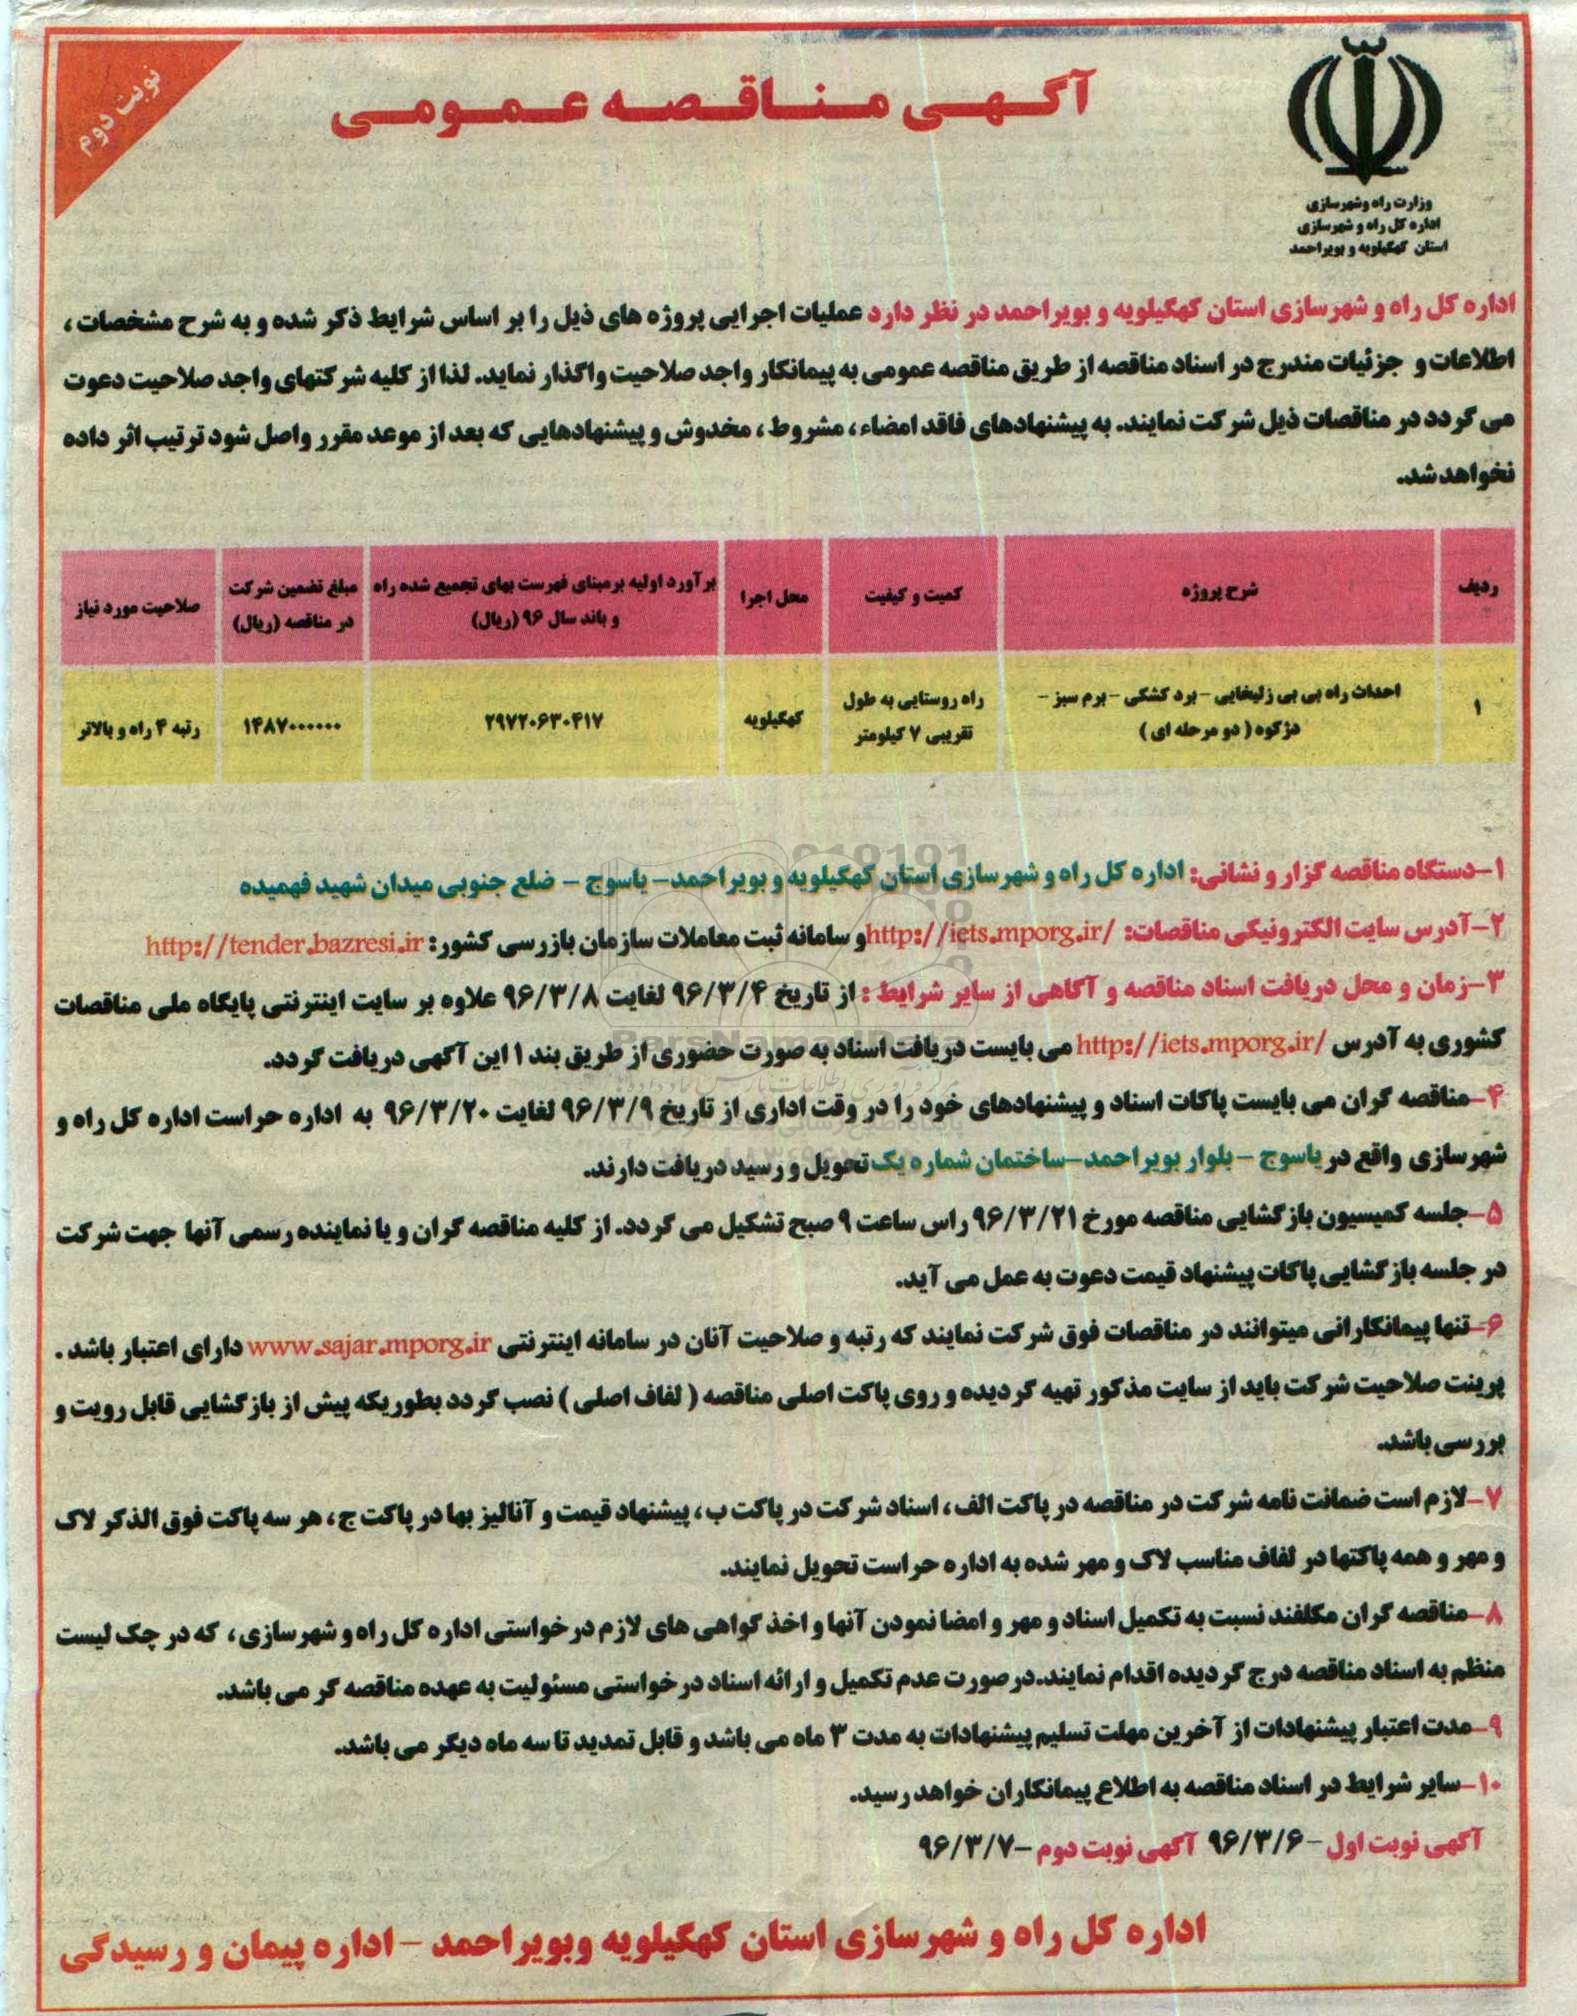 نوبت دوم
آگهی مناقصه عمومی
وزارت راه وشهرسازی
اداره کل راه و شهرسازی
استان کهگیلویه و بویراحمد
اداره کل راه و شهرسازی استان کهگیلویه و بویراحمد در نظر دارد عملیات اجرایی پروژه های ذیل را بر اساس شرایط ذکر شده و به شرح مشخصات ،
اطلاعات و جزئیات مندرج در اسناد مناقصه از طریق مناقصه عمومی به پیمانکار واجد صلاحیت واگذار نماید. لذا از کلیه شرکتهای واجد صلاحیت دعوت
می گردد در مناقصات ذیل شرکت نمایند. به پیشنهادهای فاقد امضاء ، مشروط ، مخدوش و پیشنهادهایی که بعد از موعد مقرر واصل شود ترتیب اثر داده
نخواهد شد.
ردیف شرح پروژه کمیت و کیفیت محل اجرا برآورد اولیه برمبنای فهرست بهای تجمیع شده راه و باند سال ۹۶ (ریال) مبلغ تضمین شرکت در مناقصه (ریال) صلاحیت مورد نیاز
۱ احداث راه بی بی زلیخایی - برد کشکی - برم سبز - دژکوه ( دو مرحله ای ) راه روستایی به طول تقریبی ۷ کیلومتر کهگیلویه ۲۹۷۲۰۶۳۰۴۱۷ ۱۴۸۷۰۰۰۰۰۰ رتبه ۴ راه و بالاتر
۱-دستگاه مناقصه گزار و نشانی: اداره کل راه و شهرسازی استان کهگیلویه و بویراحمد- یاسوج - ضلع جنوبی میدان شهید فهمیده
۲-آدرس سایت الکترونیکی مناقصات: http://iets.mporg.ir/ و سامانه ثبت معاملات سازمان بازرسی کشور: http://tender.bazresi.ir
۳-زمان و محل دریافت اسناد مناقصه و آگاهی از سایر شرایط : از تاریخ ۹۶/۳/۴ لغایت ۹۶/۳/۸ علاوه بر سایت اینترنتی پایگاه ملی مناقصات
کشوری به آدرس http://iets.mporg.ir/ می بایست دریافت اسناد به صورت حضوری از طریق بند ۱ این آگهی دریافت گردد.
۴-مناقصه گران می بایست پاکات اسناد و پیشنهادهای خود را در وقت اداری از تاریخ ۹۶/۳/۹ لغایت ۹۶/۳/۲۰ به اداره حراست اداره کل راه و
شهرسازی واقع در یاسوج - بلوار بویراحمد-ساختمان شماره یک تحویل و رسید دریافت دارند.
۵-جلسه کمیسیون بازگشایی مناقصه مورخ ۹۶/۳/۲۱ راس ساعت ۹ صبح تشکیل می گردد. از کلیه مناقصه گران و یا نماینده رسمی آنها جهت شرکت
در جلسه بازگشایی پاکات پیشنهاد قیمت دعوت به عمل می آید.
۶-تنها پیمانکارانی میتوانند در مناقصات فوق شرکت نمایند که رتبه و صلاحیت آنان در سامانه اینترنتی www.sajar.mporg.ir دارای اعتبار باشد .
پرینت صلاحیت شرکت باید از سایت مذکور تهیه گردیده و روی پاکت اصلی مناقصه ( لفاف اصلی ) نصب گردد بطوریکه پیش از بازگشایی قابل رویت و
بررسی باشد.
۷-لازم است ضمانت نامه شرکت در مناقصه در پاکت الف ، اسناد شرکت در پاکت ب ، پیشنهاد قیمت و آنالیز بها در پاکت ج ، هر سه پاکت فوق الذکر لاک
و مهر و همه پاکتها در لفاف مناسب لاک و مهر شده به اداره حراست تحویل نمایند.
۸-مناقصه گران مکلفند نسبت به تکمیل اسناد و مهر و امضا نمودن آنها و اخذ گواهی های لازم درخواستی اداره کل راه و شهرسازی ، که در چک لیست
منظم به اسناد مناقصه درج گردیده اقدام نمایند.درصورت عدم تکمیل و ارائه اسناد درخواستی مسئولیت به عهده مناقصه گر می باشد.
۹-مدت اعتبار پیشنهادات از آخرین مهلت تسلیم پیشنهادات به مدت ۳ ماه می باشد و قابل تمدید تا سه ماه دیگر می باشد.
۱۰-سایر شرایط در اسناد مناقصه به اطلاع پیمانکاران خواهد رسید.
آگهی نوبت اول -۹۶/۳/۶ آگهی نوبت دوم -۹۶/۳/۷
اداره کل راه و شهرسازی استان کهگیلویه وبویراحمد - اداره پیمان و رسیدگی